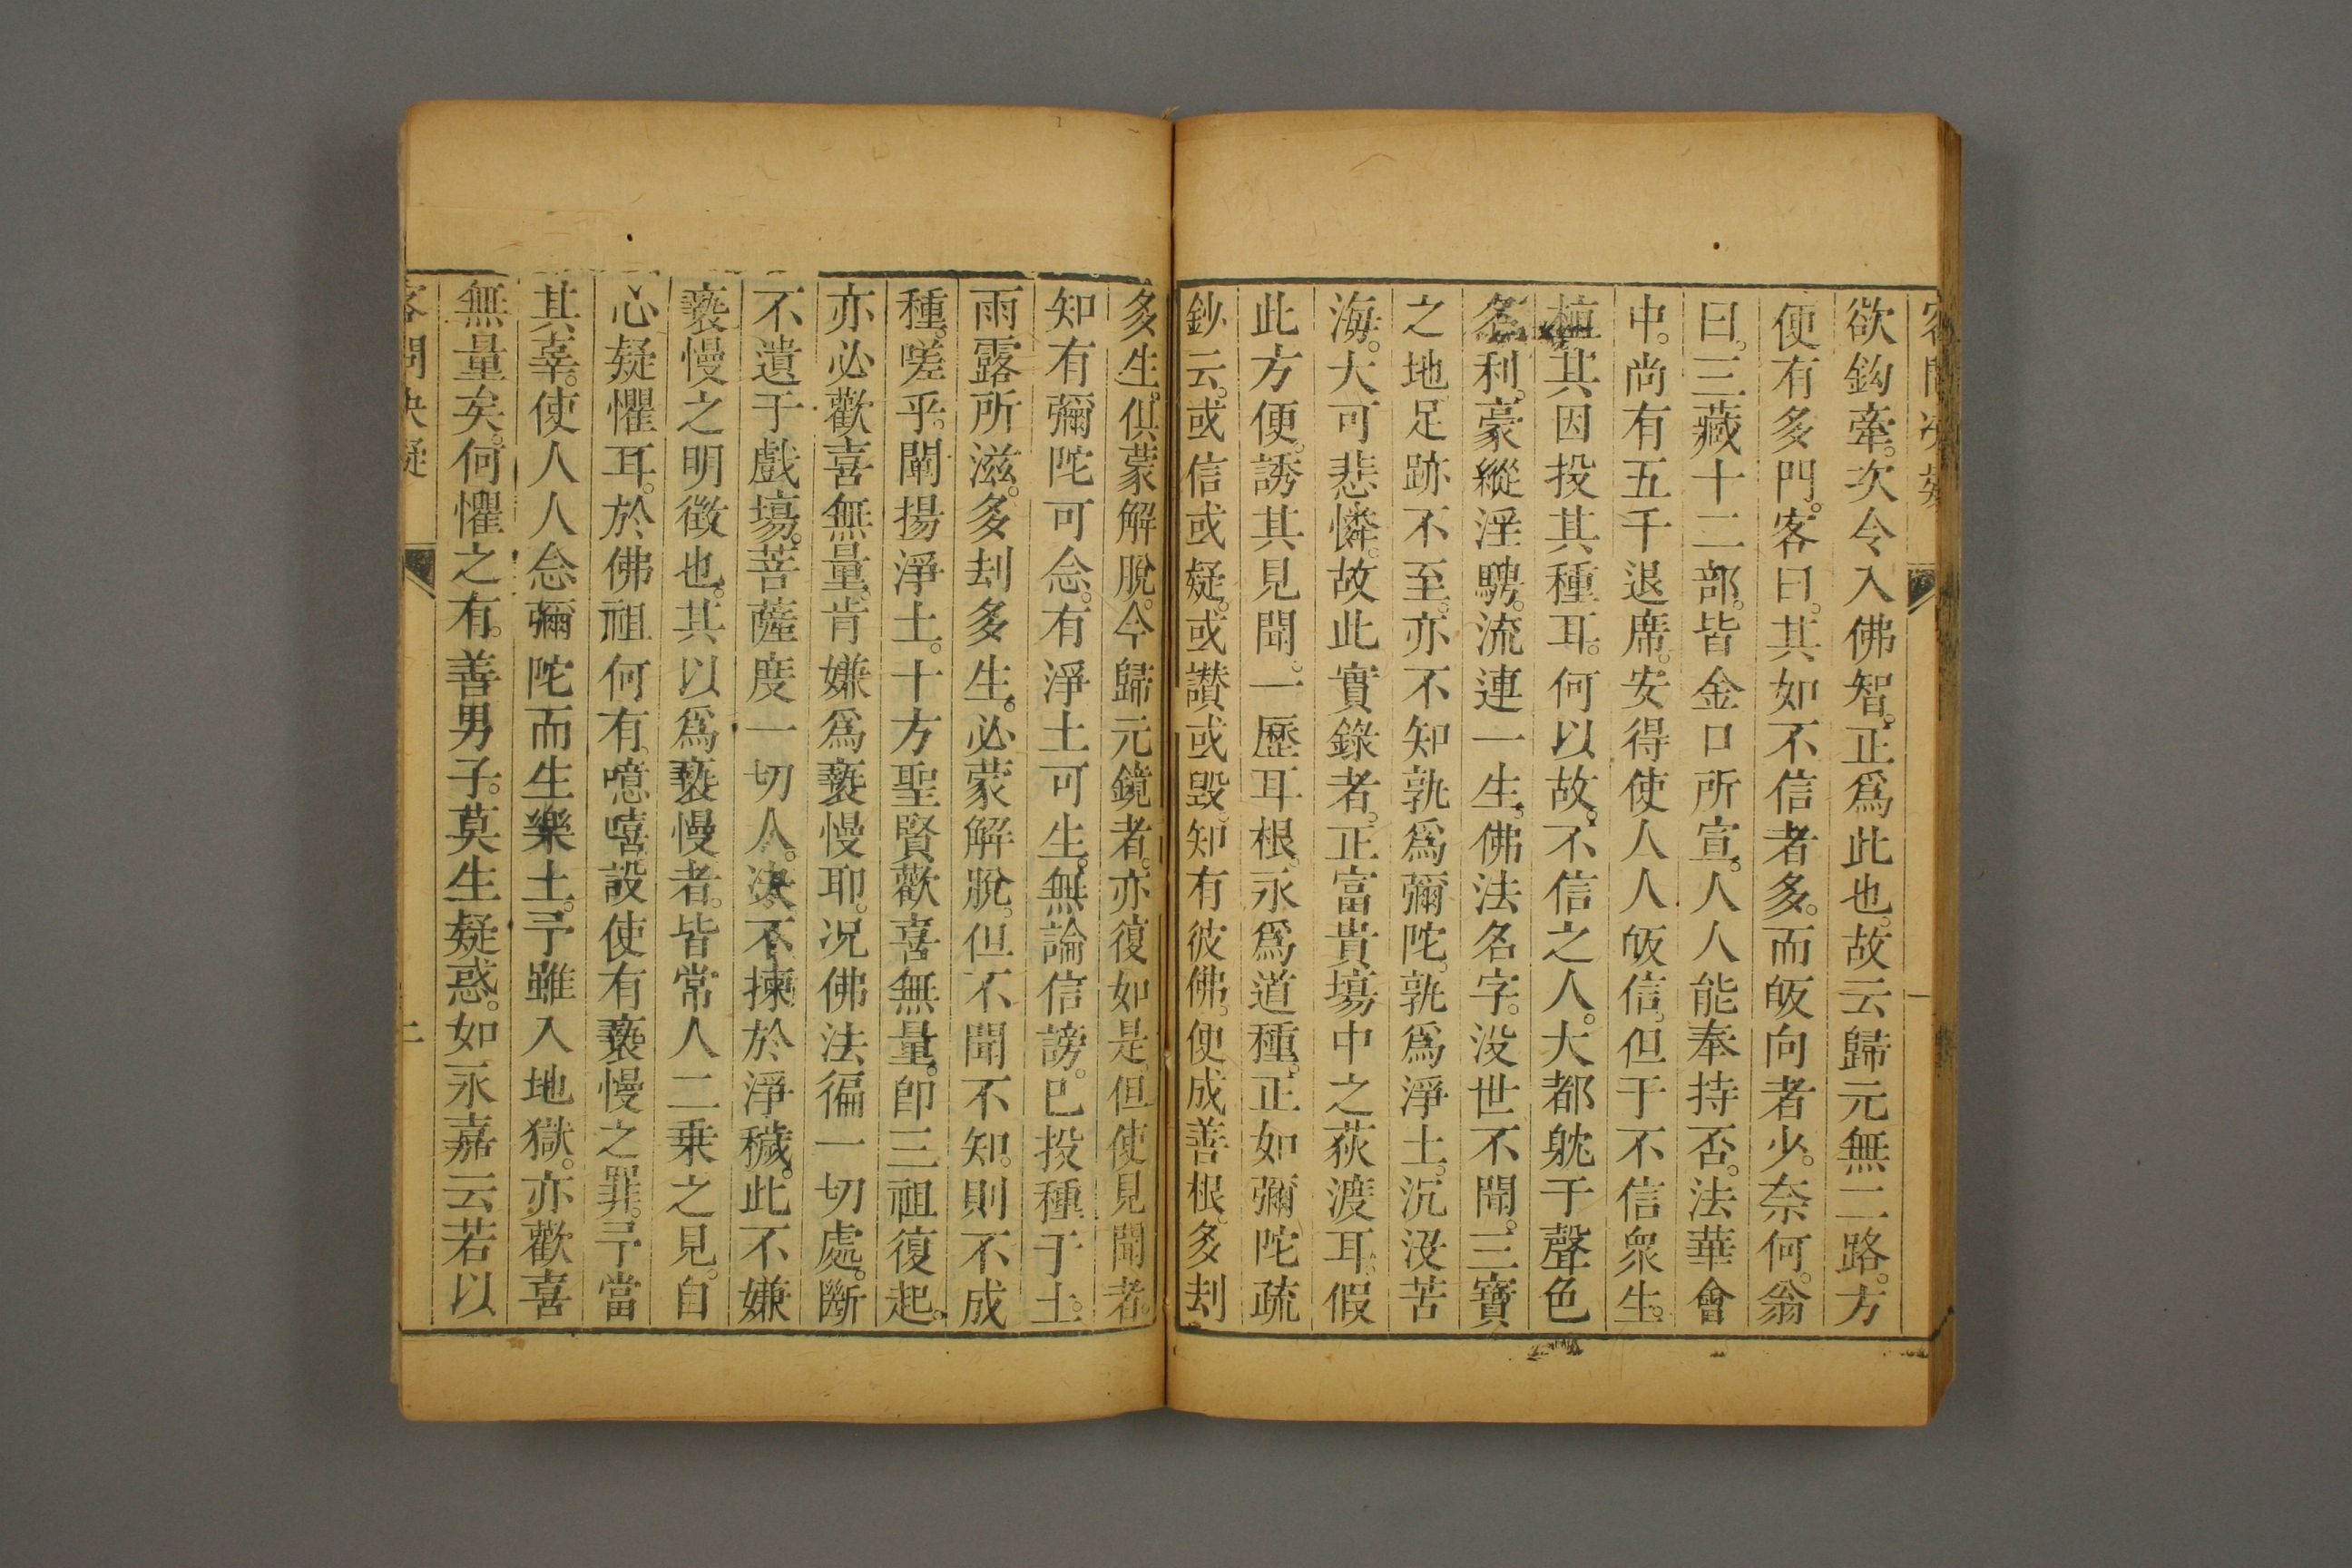 欲鈎牽。次令入佛智。正爲此也。故云歸元無二路。方
便有多門。客曰。其如不信者多。而皈向者少。奈何。翁
曰。三藏十二部。皆金口所宣。人人能奉持否。法華會
中。尚有五千退席。安得使人人皈信。但于不信衆生。
植其因投其種耳。何以故。不信之人。大都躭于聲色
名利。蒙縱淫騁。流連一生。佛法名字。没世不聞。三寶
之地足跡不至。亦不知孰爲彌陀。孰爲淨土。沉没苦
海。大可悲憐。故此實錄者。正富貴塲中之荻渡耳。假
此方便。誘其見聞。一歷耳根。永爲道種。正如彌陀疏
鈔云。或信或疑。或讃或毁。知有彼佛。便成善根。多刦
多生。俱蒙解脫。今歸元鏡者。亦復如是。但使見聞者。
知有彌陀可念。有淨土可生。無論信謗。已投種于土。
雨露所滋。多刦多生。必蒙解脫。但不聞不知。則不成
種。嗟乎。闡揚淨土。十方聖賢歡喜無量。卽三祖復起。
亦必歡喜無量。肯嫌爲褻慢耶。况佛法徧一切處。斷
不遺于戲塲。菩薩度一切人。決不揀於淨穢。此不嫌
褻慢之明徵也。其以爲褻慢者。皆常人二乗之見。自
心疑懼耳。於佛祖何有。噫嘻設使有褻慢之罪。予當
其辜。使人人念彌陀而生樂土。予雖入地獄。亦歡喜
無量矣。何懼之有。善男子。莫生疑惑。如永嘉云若以
客問決疑
二